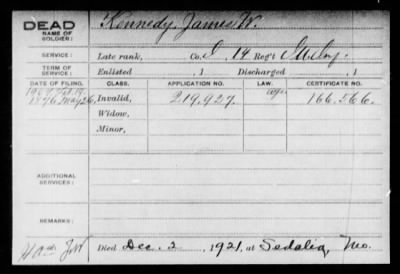 DEAD
NAME OF SOLDIER:
Kennedy, James W.
SERVICE:
Late rank, Co. I, 14 Reg't
TERM OF SERVICE:
Enlisted , 1 Discharged , 1
DATE OF FILING. CLASS. APPLICATION NO. LAW. CERTIFICATE NO.
1876 May 26, Invalid, 219,927. 166,566.
Widow,
Minor,
ADDITIONAL SERVICES:
REMARKS:
Died Dec. 2, 1921, at Sedalia, Mo.